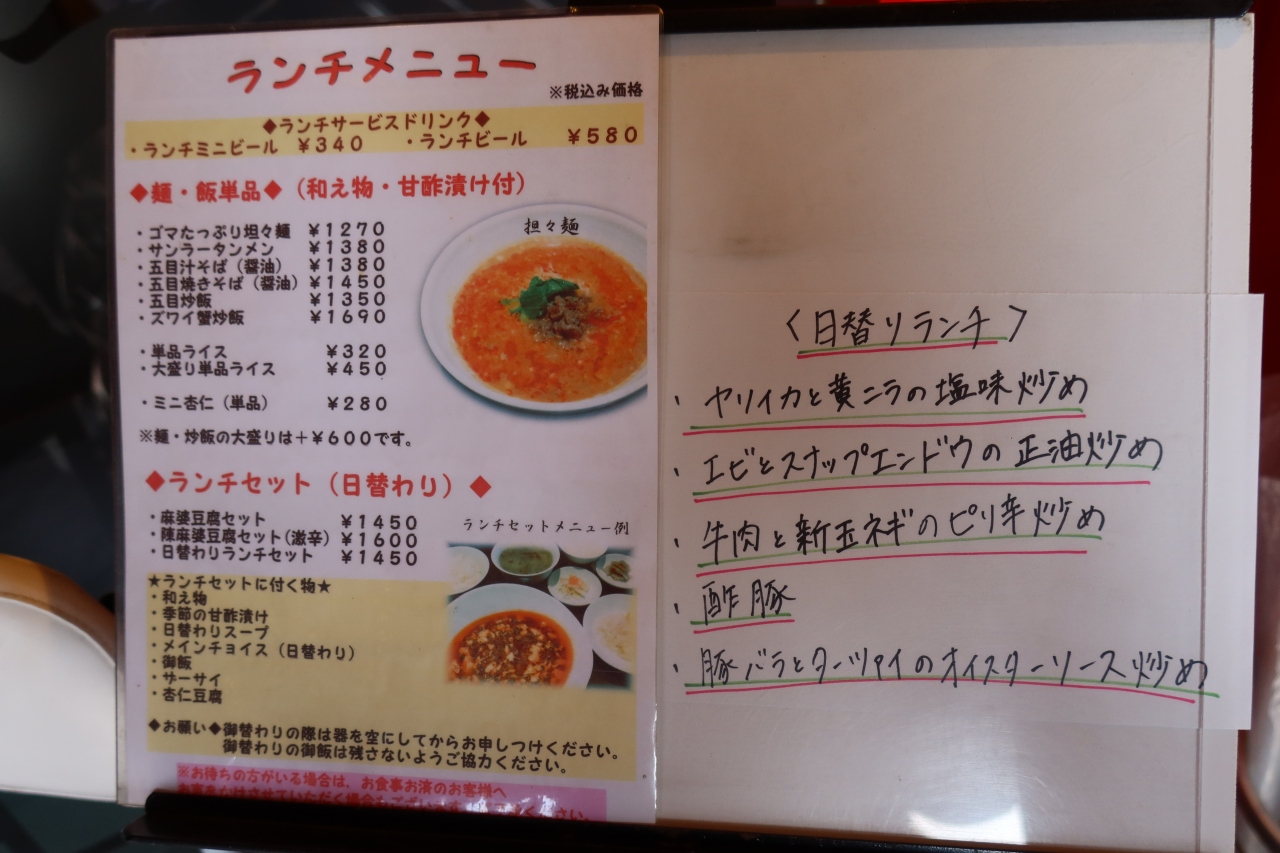 ランチメニュー
※税込み価格
◆ランチサービスドリンク◆
・ランチミニビール ￥３４０ ・ランチビール ￥５８０
◆麺・飯単品◆（和え物・甘酢漬け付）
・ゴマたっぷり坦々麺 ￥１２７０
・サンラータンメン ￥１３８０
・五目汁そば（醤油） ￥１３８０
・五目焼きそば（醤油） ￥１４５０
・五目炒飯 ￥１３５０
・ズワイ蟹炒飯 ￥１６９０
担々麺
・単品ライス ￥３２０
・大盛り単品ライス ￥４５０
・ミニ杏仁（単品） ￥２８０
※麺・炒飯の大盛りは＋￥６００です。
◆ランチセット（日替わり）◆
・麻婆豆腐セット ￥１４５０
・陳麻婆豆腐セット(激辛) ￥１６００
・日替わりランチセット ￥１４５０
ランチセットメニュー例
★ランチセットに付く物★
・和え物
・季節の甘酢漬け
・日替わりスープ
・メインチョイス（日替わり）
・御飯
・ザーサイ
・杏仁豆腐
◆お願い◆御替わりの際は器を空にしてからお申しつけください。
御替わりの御飯は残さないようご協力ください。
※お待ちの方がいる場合は、お食事お済のお客様へ
〈日替りランチ〉
・ヤリイカと黄ニラの塩味炒め
・エビとスナップエンドウの正油炒め
・牛肉と新玉ネギのピリ辛炒め
・酢豚
・豚バラとターツァイのオイスターソース炒め